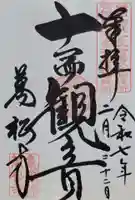 奉拝
令和七年
二月二十二日
十一面観音
萬松寺